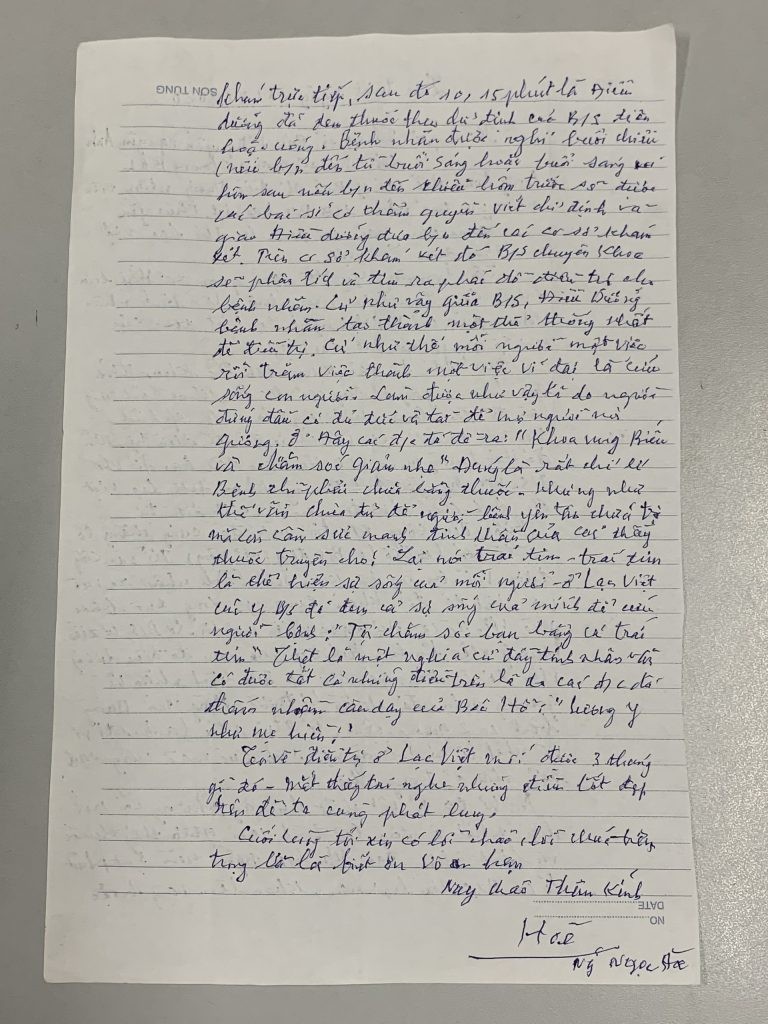 SƠN TÙNG
khám trực tiếp, sau đó 10, 15 phút là Điều
dưỡng đã đem thuốc theo dự định của B/S điều
hoặc uống. Bệnh nhân được nghỉ buổi chiều
(nếu b/n đến từ buổi sáng hoặc buổi sáng
hôm sau nếu b/n đến chiều hôm trước sẽ được
các bác sĩ có thẩm quyền viết chỉ định và
giao Điều dưỡng đưa b/n đến các cơ sở khám
xét. Trên cơ sở khám xét đó B/S chuyên khoa
sẽ phân tích và tìm ra phác đồ điều trị cho
bệnh nhân. Cứ như vậy giữa B/S, Điều Dưỡng
bệnh nhân tạo thành một thể thống nhất
để điều trị. Cứ như thế mỗi người một việc
rồi trăm việc thành một việc vĩ đại là cứu
sống con người. Làm được như vậy là do người
đứng đầu có đủ đức và tài để mọi người noi
gương. Ở đây các đ/c đã đề ra: "Khoa vững Biển
và chăm sóc giản nhẹ" Đúng là rất chí lý
Bệnh thì phải chữa bằng thuốc. nhưng như
thế vẫn chưa đủ để người bệnh yên tâm chữa trị
mà còn cần sức mạnh tinh thần của các thầy
thuốc truyền cho! Lại nói trái tim - trái tim
là thể hiện sự sống của mỗi người - ở Lạc Việt
các y B/S đã đem cả sự sống của mình để cứu
người bệnh: "Tôi chăm sóc bạn bằng cả trái
tim" Thật là một nghĩa cử đầy tính nhân văn
có được tất cả những điều trên là do các đ/c đã
thấm nhuần câu dạy của Bác Hồ: "Lương y
như mẹ hiền"!
Tôi về điều trị ở Lạc Việt mới được 3 tháng
gì đó - mắt thấy tai nghe những điều tốt đẹp
nên để ta cùng phát huy.
Cuối cùng tôi xin có lời chào lời chúc trân
trọng và là biết ơn vô hạn
Nay chào Thân Kính
DATE
NO
Hoè
Ngọc Hoè